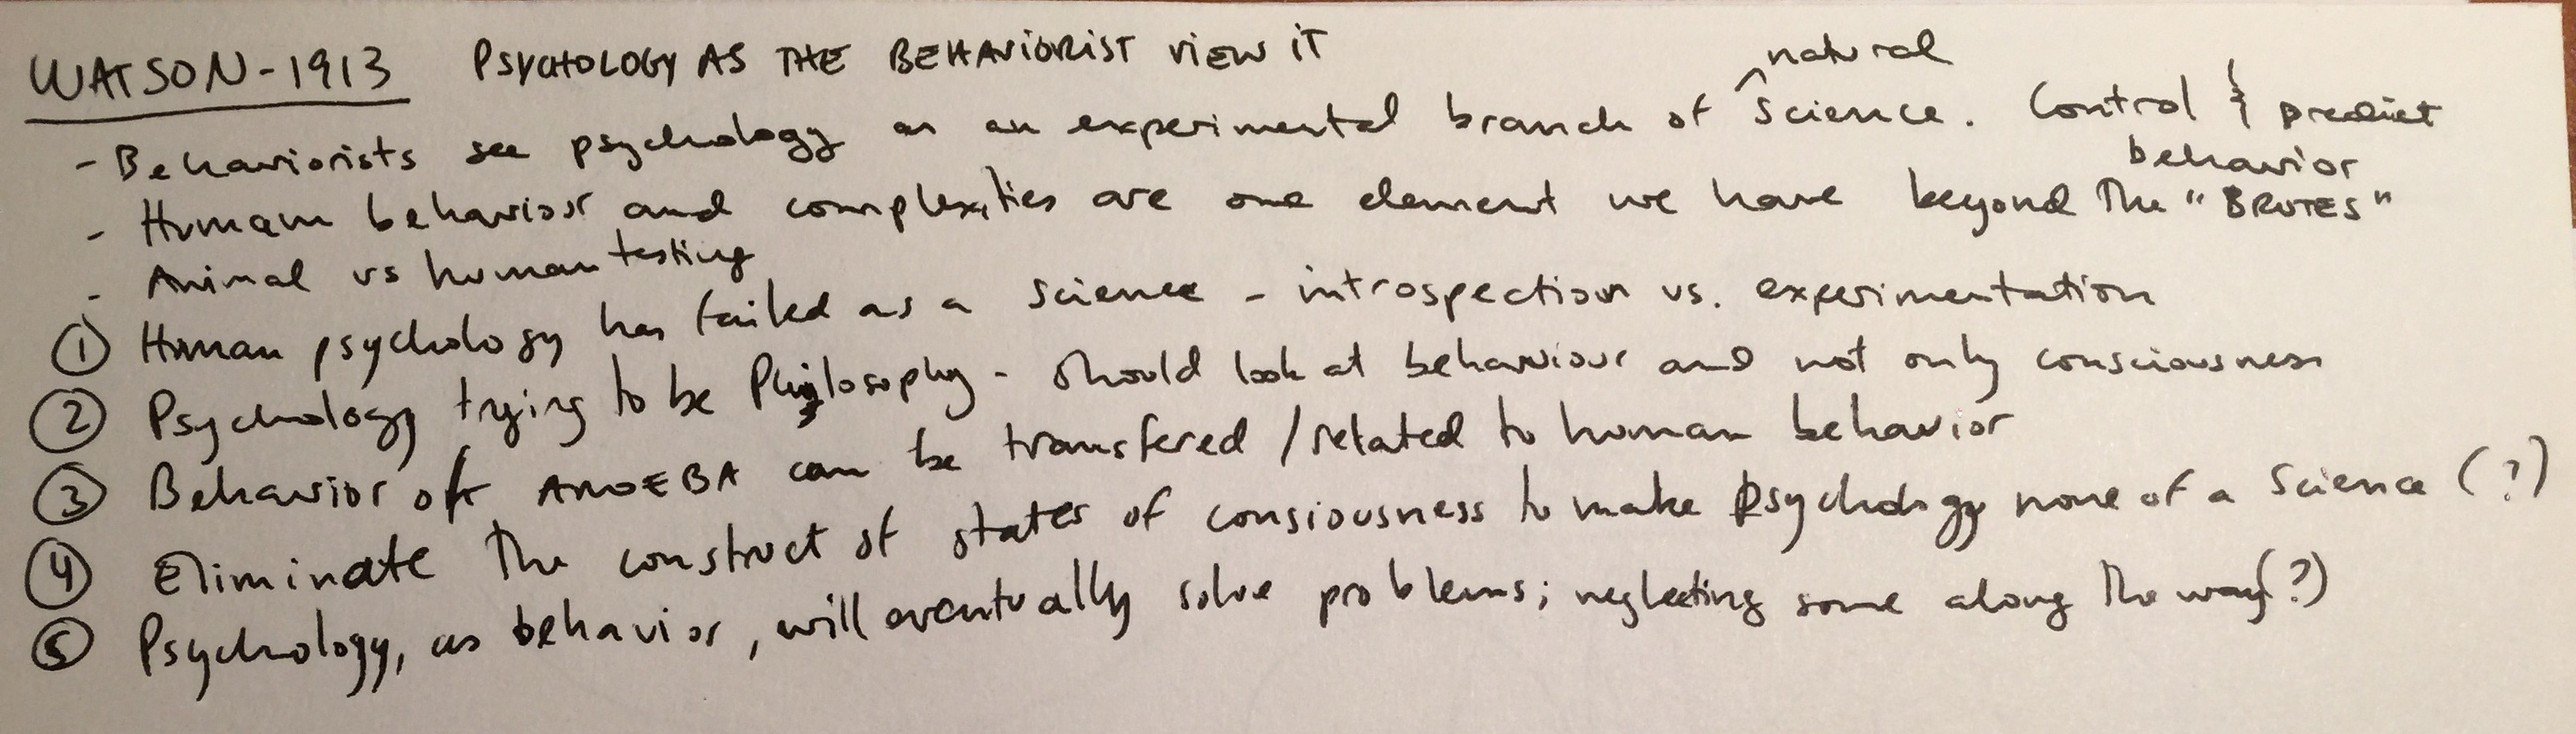 WATSON-1913 PSYCHOLOGY AS THE BEHAVIORIST VIEW IT
- Behaviorists see psychology as an experimental branch of natural science. Control & predict
behavior
- Human behaviour and complexities are one element we have beyond the "BRUTES"
- Animal vs human testing
① Human psychology has failed as a science - introspection vs. experimentation
② Psychology trying to be Philosophy - should look at behaviour and not only consciousness
③ Behavior of AMOEBA can be transfered / related to human behavior
④ Eliminate the construct of states of consiousness to make psychology none of a science (?)
⑤ Psychology, as behavior, will eventually solve problems; neglecting some along the way (?)